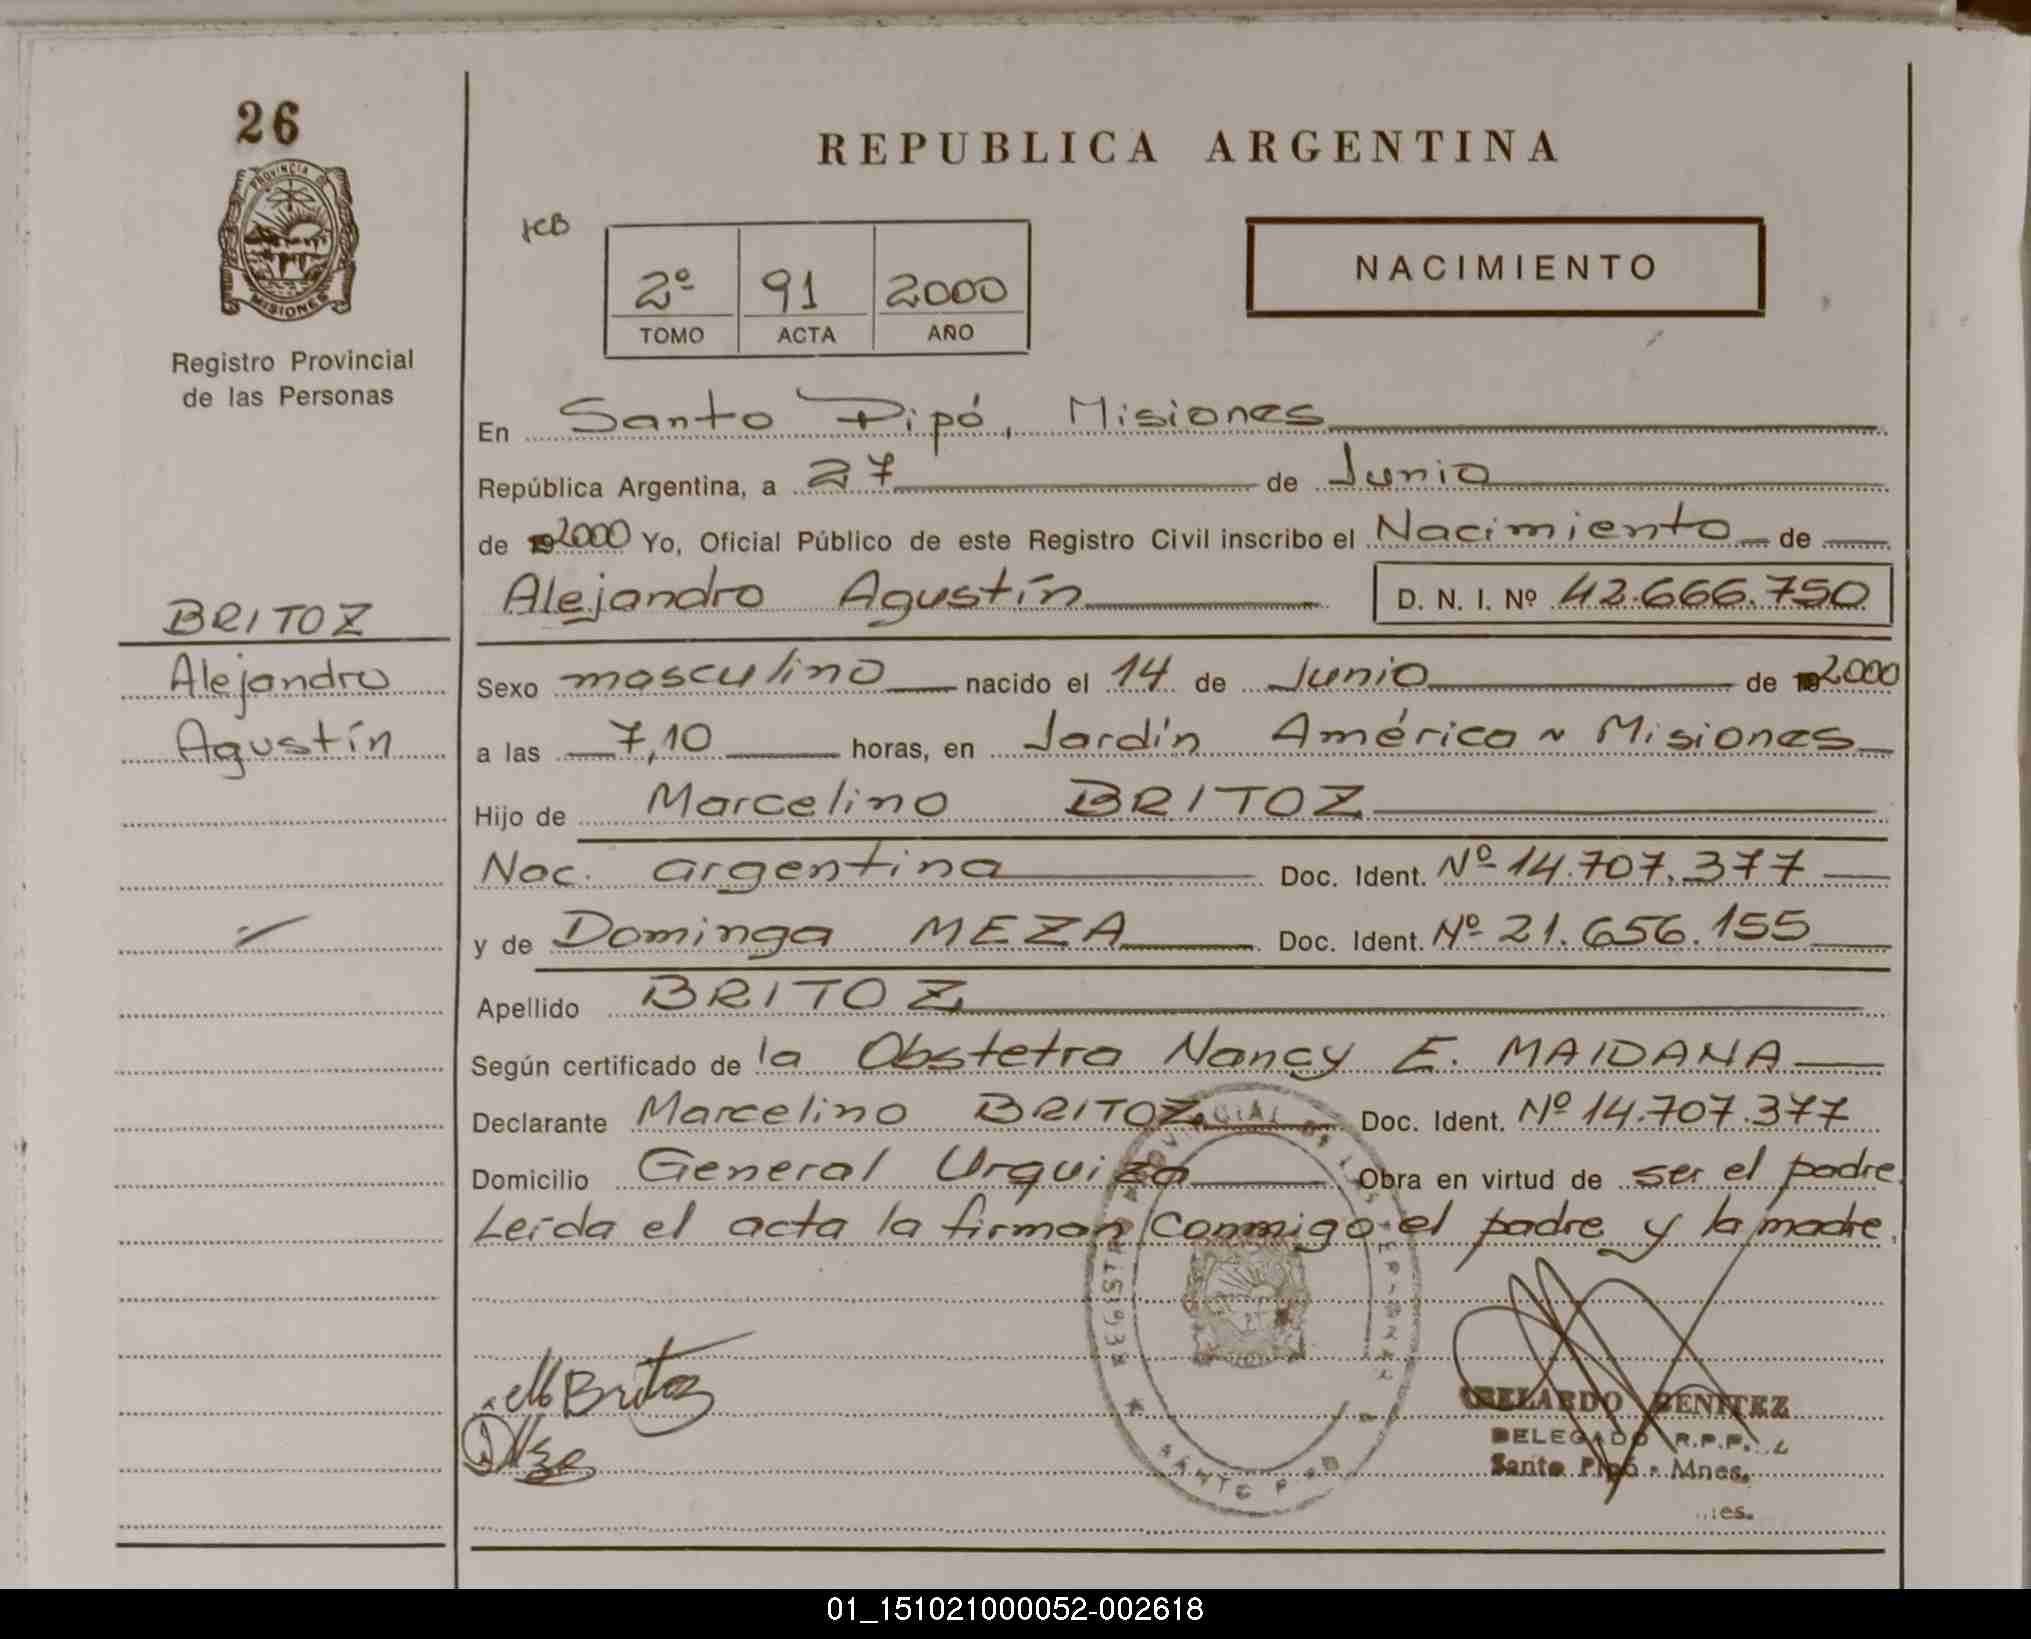 26
PROVINCIA DE
MISIONES
Registro Provincial
de las Personas
BRITOZ
Alejandro
Agustín
REPUBLICA ARGENTINA
2º 91 2000
TOMO ACTA AÑO
NACIMIENTO
En Santo Pipó, Misiones
República Argentina, a 27 de Junio
de 2000 Yo, Oficial Público de este Registro Civil inscribo el Nacimiento de
Alejandro Agustín D. N. I. Nº 42.666.750
Sexo masculino nacido el 14 de Junio de 2000
a las 7,10 horas, en Jardín América ~ Misiones
Hijo de Marcelino BRITOZ
Nac. argentina Doc. Ident. Nº 14.707.377
y de Dominga MEZA Doc. Ident. Nº 21.656.155
Apellido BRITOZ
Según certificado de la Obstetra Nancy E. MAIDANA
Declarante Marcelino BRITOZ Doc. Ident. Nº 14.707.377
Domicilio General Urquiza Obra en virtud de ser el padre.
Leída el acta la firman conmigo el padre y la madre.
Britoz
BENITEZ
DELEGADO R.P.P.
Santo Pipó - Mnes.
01_151021000052-002618